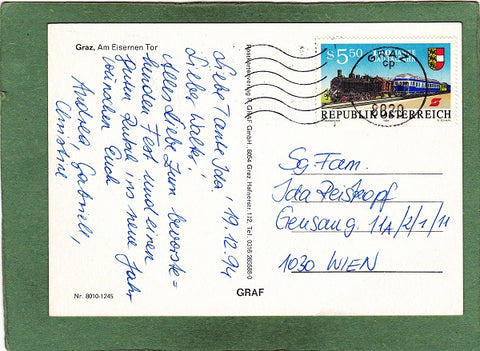 Graz, Am Eisernen Tor
Liebe Tante Ida, 19.12.94
Lieber Walter!
Alles Liebe zum bevorste=
henden Fest und einen
guten Rutsch ins neue Jahr
wünschen Euch
Andrea, Gabriele,
Christine
Nr. 8010-1245
Postkartenverlag P. GRAF GesmbH., 8054 Graz, Hafnerstr. 112, Tel. 0316
GRAF
S 5,50
REPUBLIK ÖSTERREICH
GRAZ
8020
Sg Fam.
Ida Reiskopf
Gensaug. 11A/2/1/11
1030 WIEN